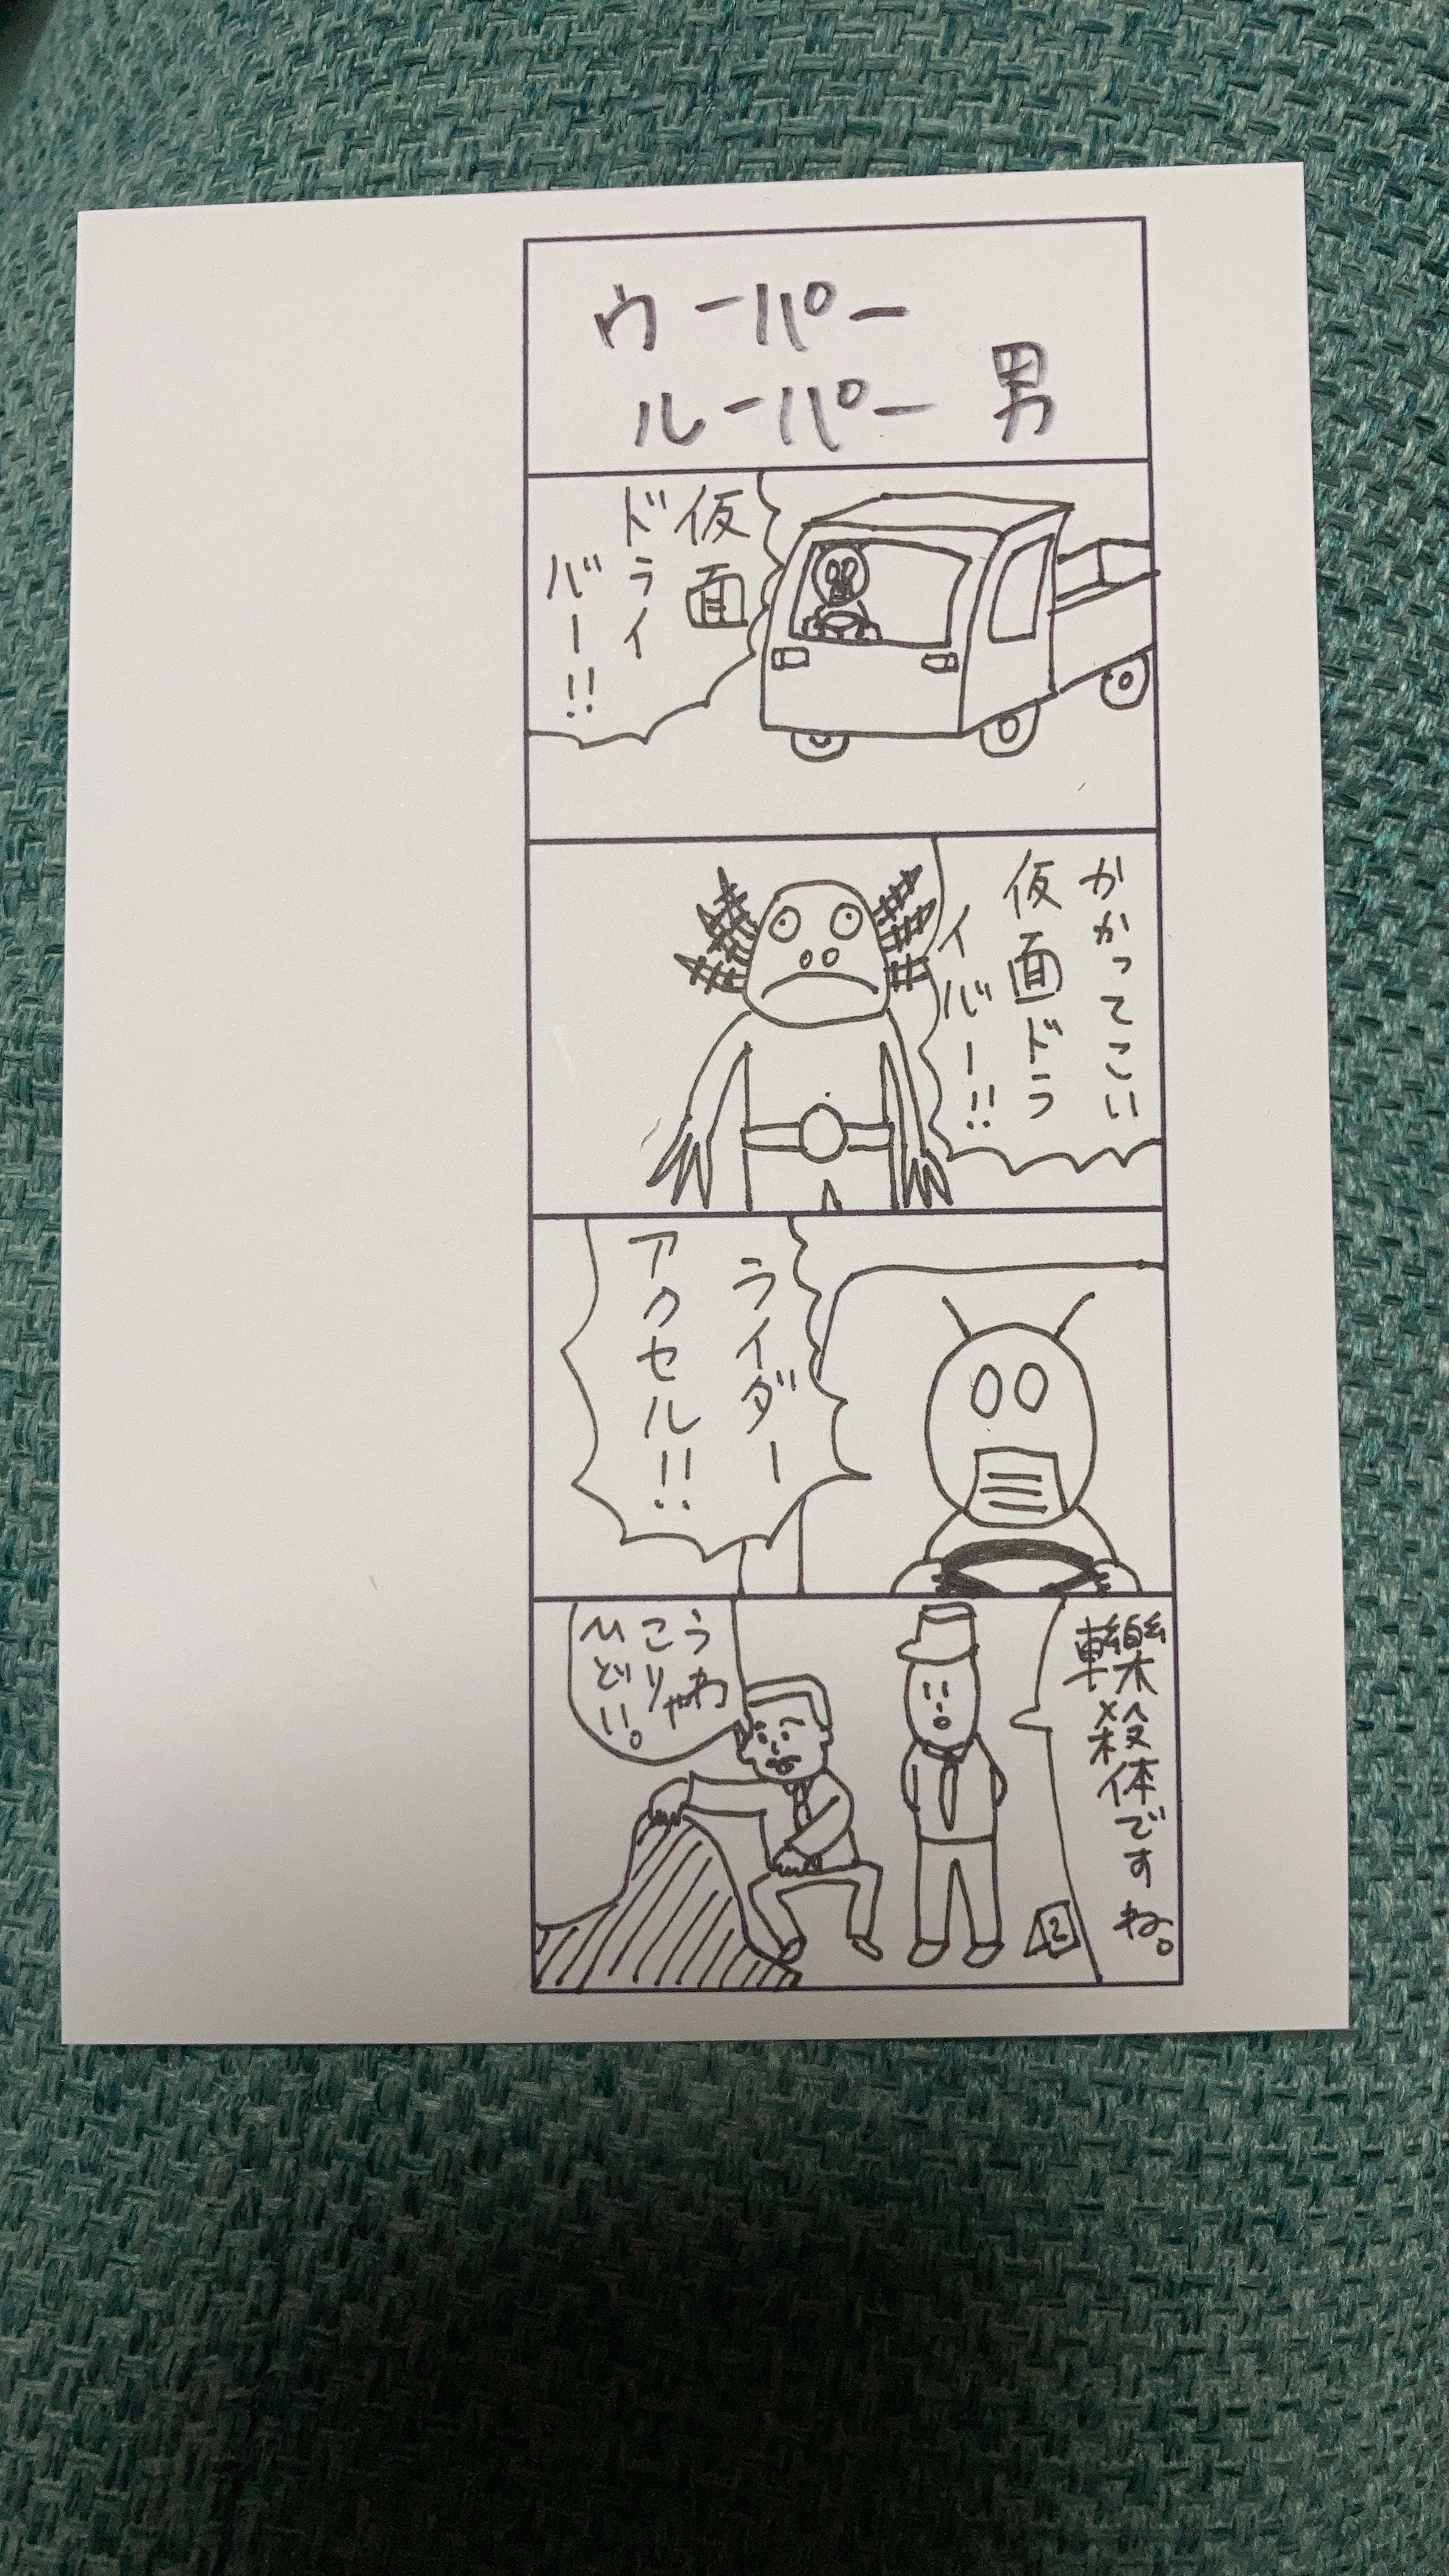 ウーパー
ルーパー男
仮面
ドライ
バー!!
かかってこい
仮面ドラ
イバー!!
ライダー
アクセル!!
轢殺体ですね。
うわ
こりゃ
ひどい。
42